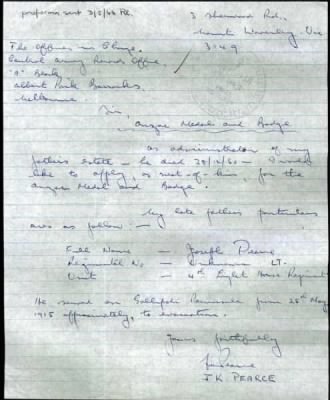 proforma sent 3/5/68
3 Sherwood Rd.,
Mount Waverley. Vic
3149
The Officer in Charge.
Central Army Records Office.
"A" Block
Albert Park Barracks
Melbourne
Sir,
Anzac Medal and Badge
As administrator of my
father's Estate — he died — I would
like to apply, as next of kin, for the
Anzac Medal and Badge.
My late father's particulars
are as follows —
Full Name — Joseph Pearce
Regimental No — Unknown LT.
Unit — 4th Light Horse Regiment
He served on Gallipoli Peninsula from 25th May
1915 approximately, to evacuation.
Yours faithfully
J K PEARCE